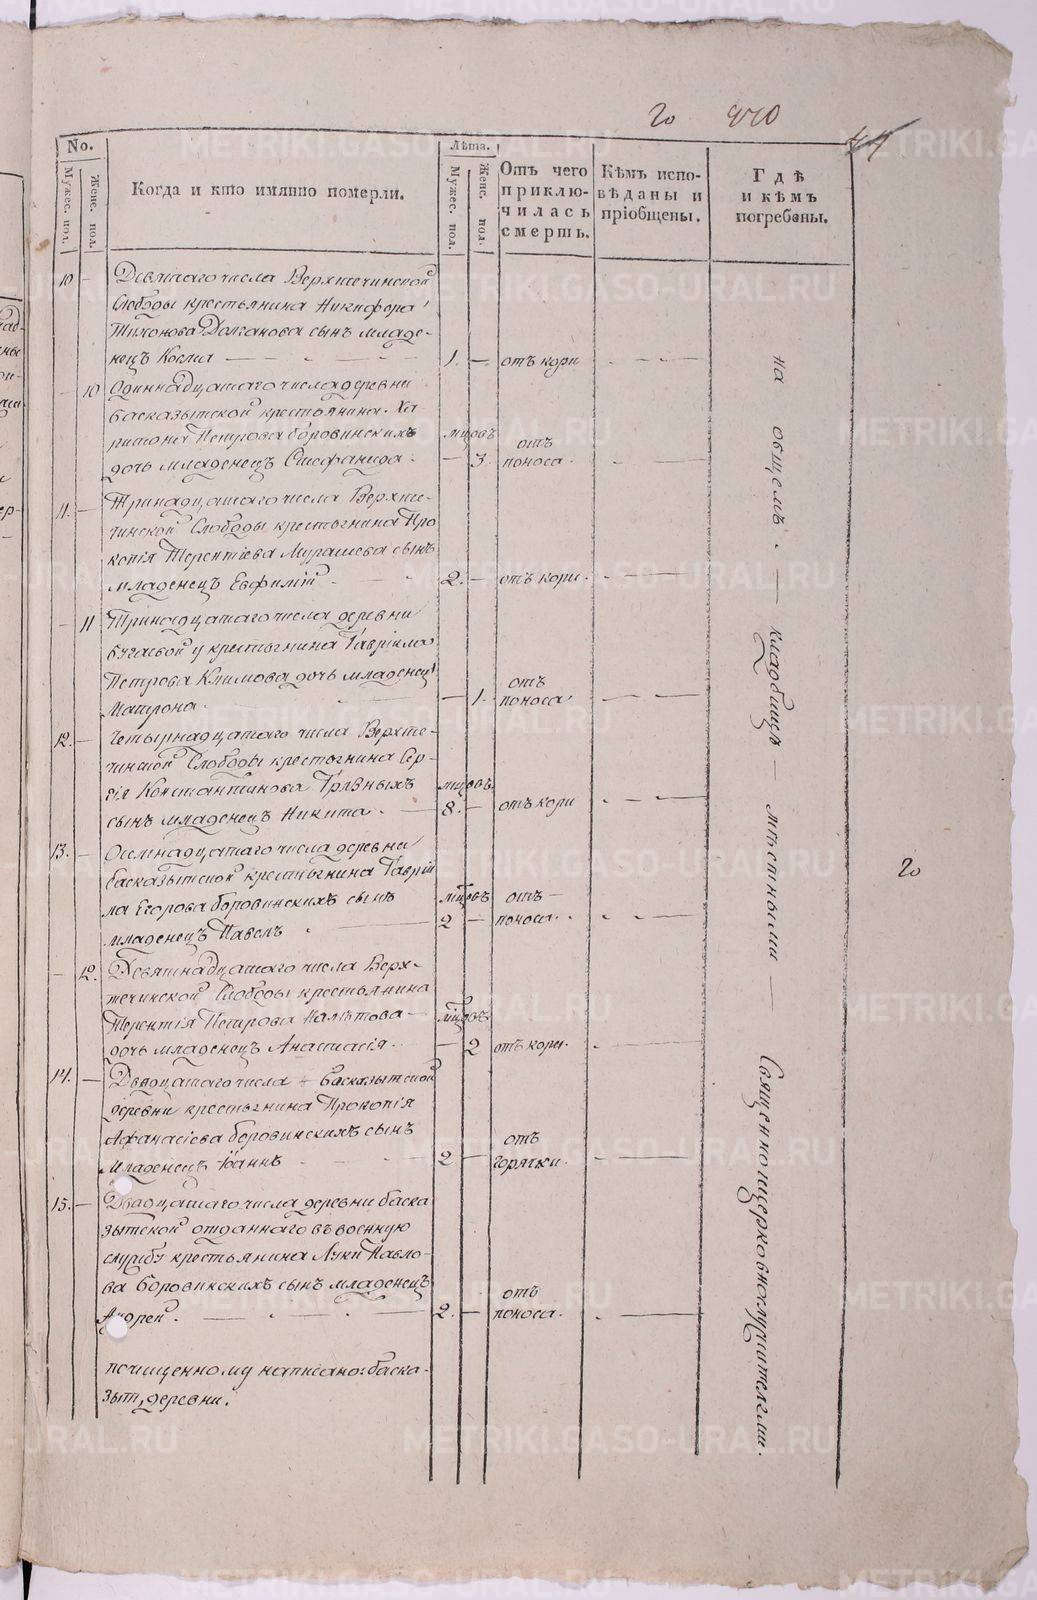 20 440
44
No.
Мужес. пол.
Женс. пол.
Когда и кто имянно померли.
Лѣта.
Мужес. пол.
Женс. пол.
Отъ чего приклю-чилась смерть.
Кѣмъ испо-вѣданы и пріобщены.
Гдѣ и кѣмъ погребены.
10 — Девятаго числа Верхтечинской
Слободы крестьянина Никифора
Тимонова Долганова сынъ младе-
нецъ Козма — 1. — отъ кори
— 10 Одиннадцатаго числа деревни
Басказытской крестьянина Ха-
ритона Петрова Боровинскихъ мцовъ отъ
дочь младенецъ Стефанида. — 3. поноса.
11. — Тринадцатаго числа Верхте-
чинской Слободы крестьянина Про
копія Терентіева Мурашева сынъ
младенецъ Евфимій. 2. — отъ кори.
— 11 Тринадцатаго числа деревни
Бугаевой у крестьянина Гавріила
Петрова Климова дочь младенецъ отъ
Матрона. — 1. поноса.
12. — Четырнадцатаго числа Верхте-
чинской Слободы крестьянина Сер-
гія Константинова Грязныхъ мцовъ
сынъ младенецъ Никита. — 8. — отъ кори
13. — Осмнадцатаго числа деревни
Басказытской крестьянина Гаврі
ла Егорова Боровинскихъ сынъ мцовъ отъ —
младенецъ Павелъ 2 — поноса.
— 12. Девятнадцатаго числа Верх-
течинской Слободы крестьянина
Терентія Петрова Налѣтова — мцовъ
дочь младенецъ Анастасія. — 2 отъ кори.
14. — Двадцатаго числа Басказытской
деревни крестьянина Прокопія
Афанасіева Боровинскихъ сынъ отъ
младенецъ Іоаннъ 2 — горячки.
15. — Двадцатаго числа деревни Баска
зытской отданнаго въ военную
службу крестьянина Луки Павло-
ва Боровинскихъ сынъ младенецъ отъ
Андрей. 2. — поноса.
почищенному написано: Баска-
зыт, деревни.
на общемъ — кладбищѣ — мѣстными — Священноицерковнослужителями.
20
METRIKI.GASO-URAL.RU